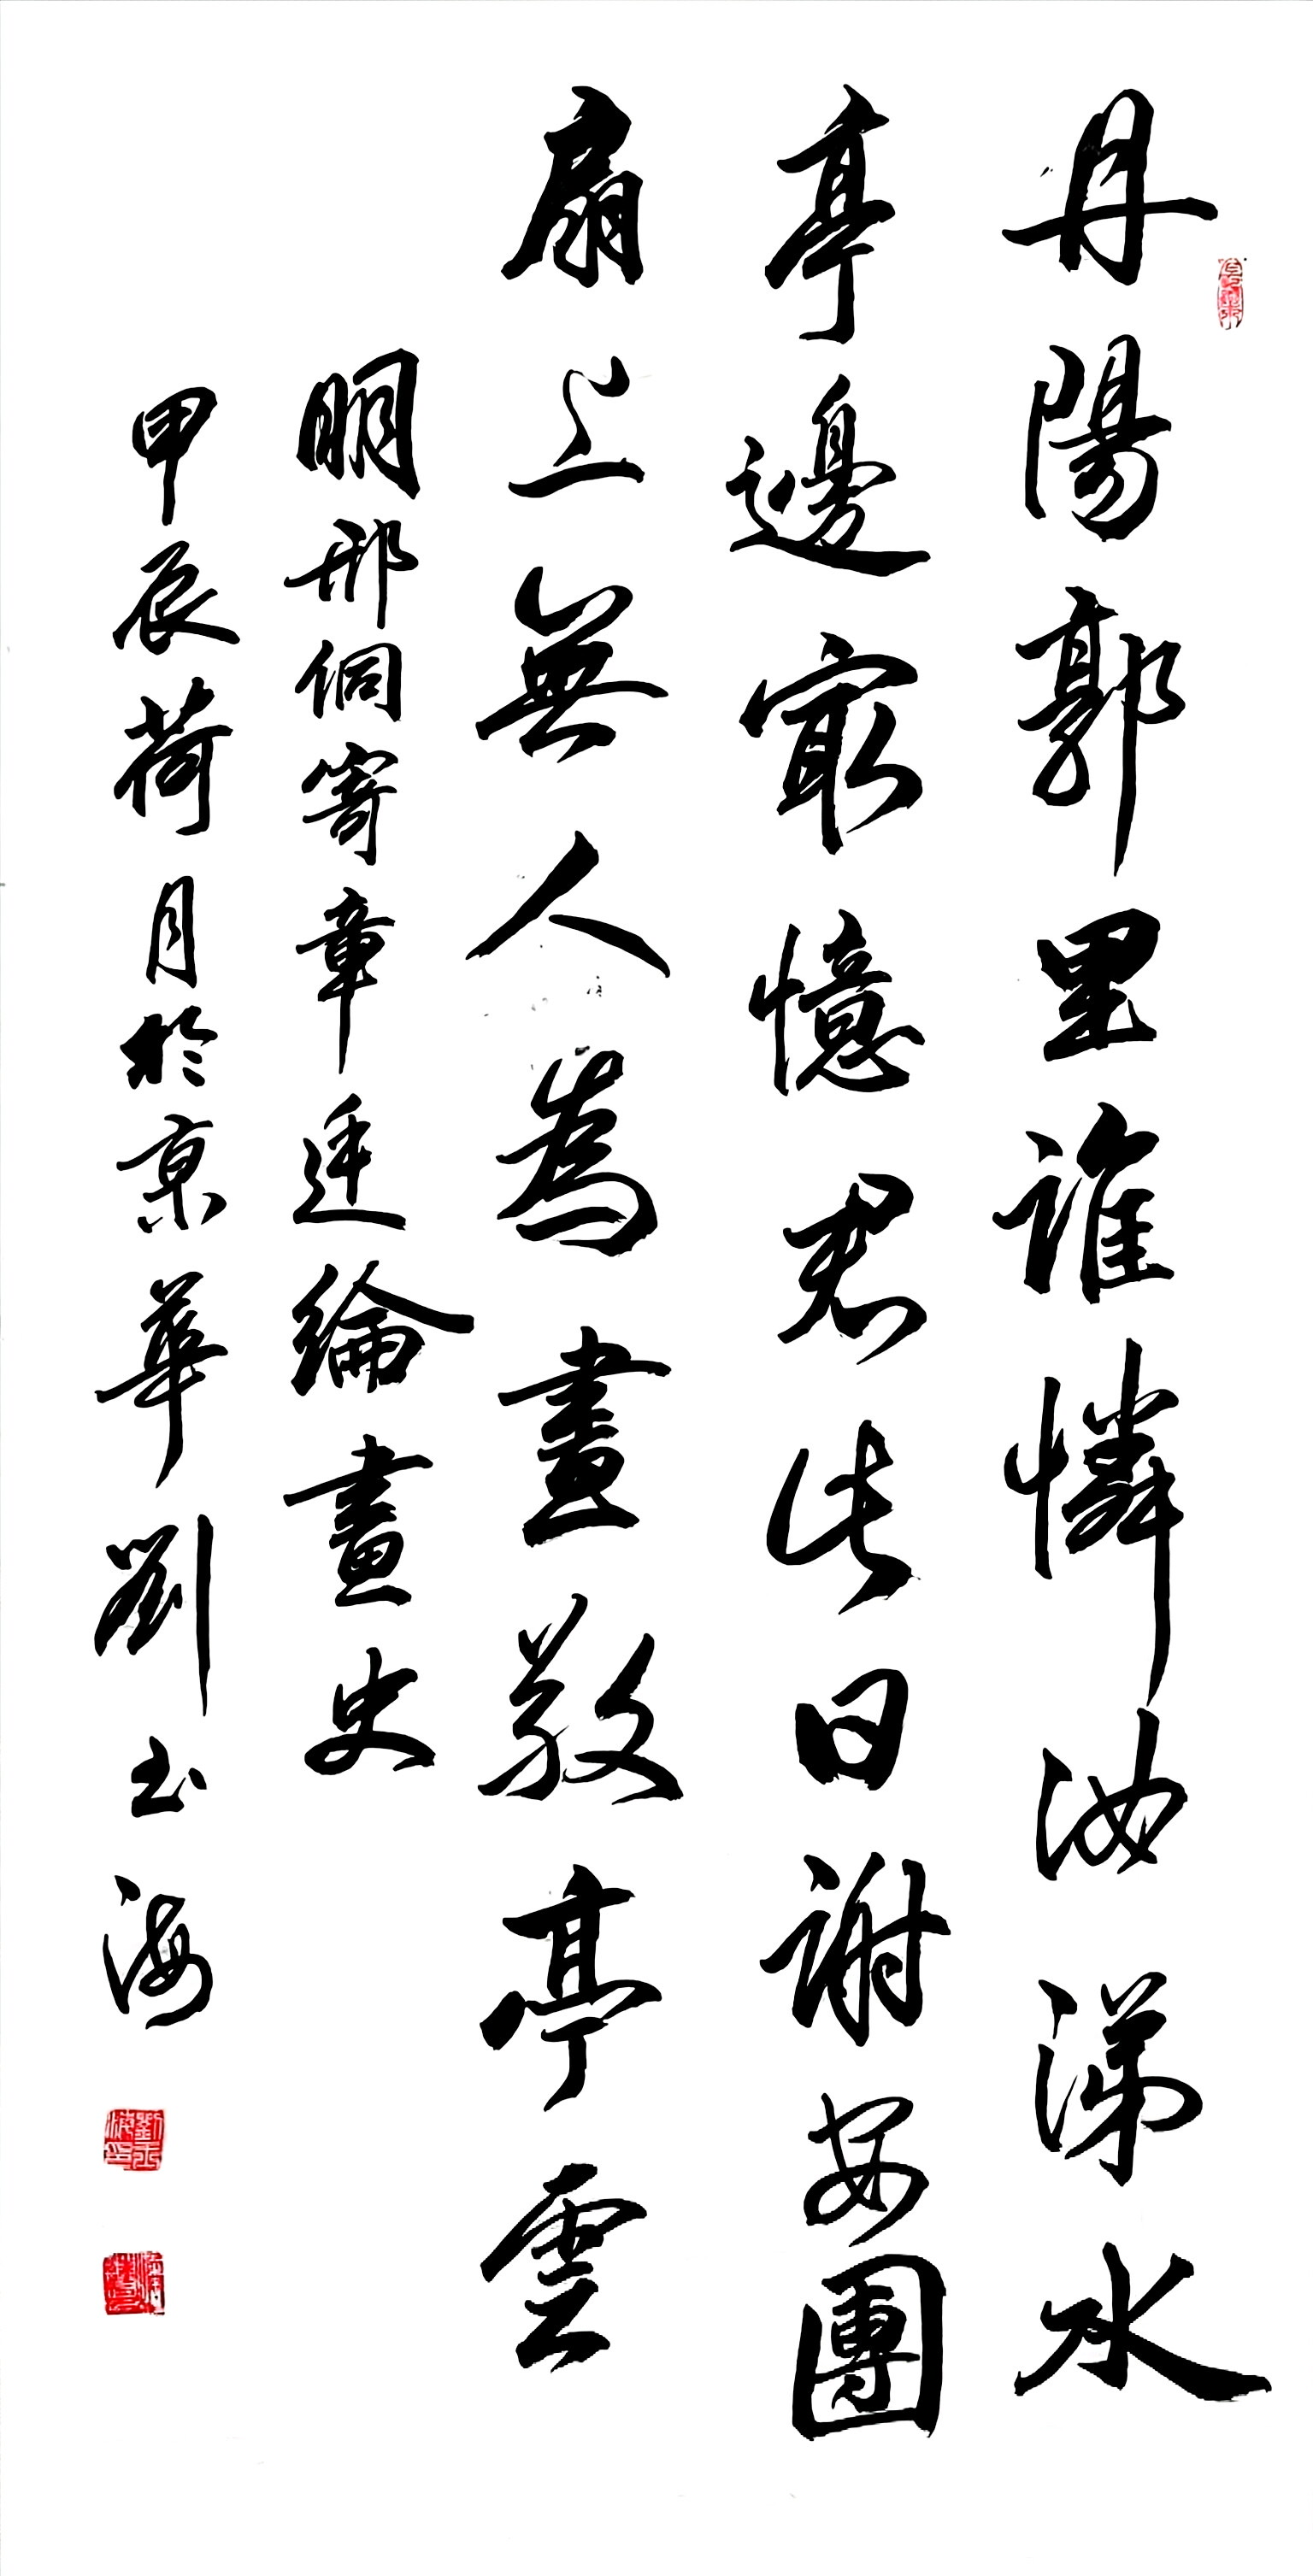 丹陽郭里誰憐汝涕水
亭邊最憶君此日謝安團
扇上無人為畫敬亭雲
明邢侗寄章綸畫史
甲辰荷月於京華劉玉海
劉玉海印